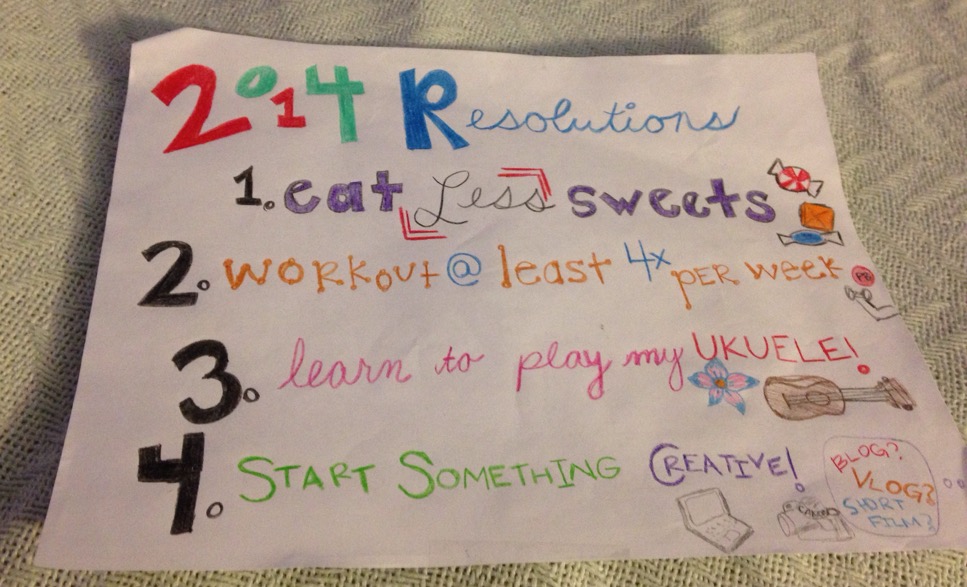 2014 Resolutions
1. eat Less sweets
2. WORKOUT @ least 4x PER week
3. learn to play my UKUELE!
4. START SOMETHING CREATIVE!
BLOG?
VLOG?
SHORT
FILM?